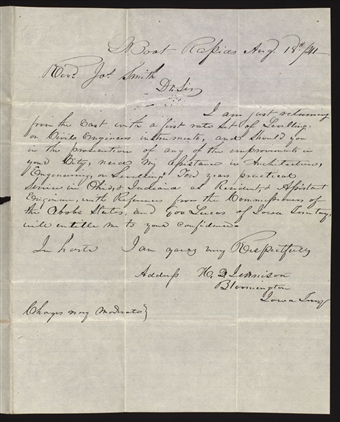 Boat Rapids Aug. 18th/41
Revd. Jos. Smith
Dr Sir
I am just returning
from the East with a first rate set of Levelling
or Civil Engineer instruments, and should you
in the prosecution of any of the improvements in
your City, need my assistance in Architecture,
Engineering, or Leveling: Five years practical
Service in Ohio, & Indiana as Resident, & Assistant
Engineer, with References from the Commissioners of
the Above States, and Gov Lucas of Iowa Teritory,
will entitle me to your confidence
In haste I am yours very Respectfully
Address H. D. Jennison
Bloomington
Iowa Tery
Charges very Moderate}